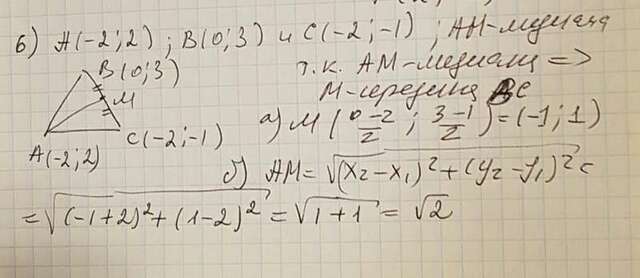 б) A(-2;2); B(0;3) и C(-2;-1); AM-медиана
B(0;3)
M
C(-2;-1)
A(-2;2)
т.к. AM-медиана =>
M-середина BC
а) M (0-2/2 ; 3-1/2) = (-1;1)
б) AM = √(x₂-x₁)²+(y₂-y₁)² =
= √(-1+2)²+(1-2)² = √1+1 = √2